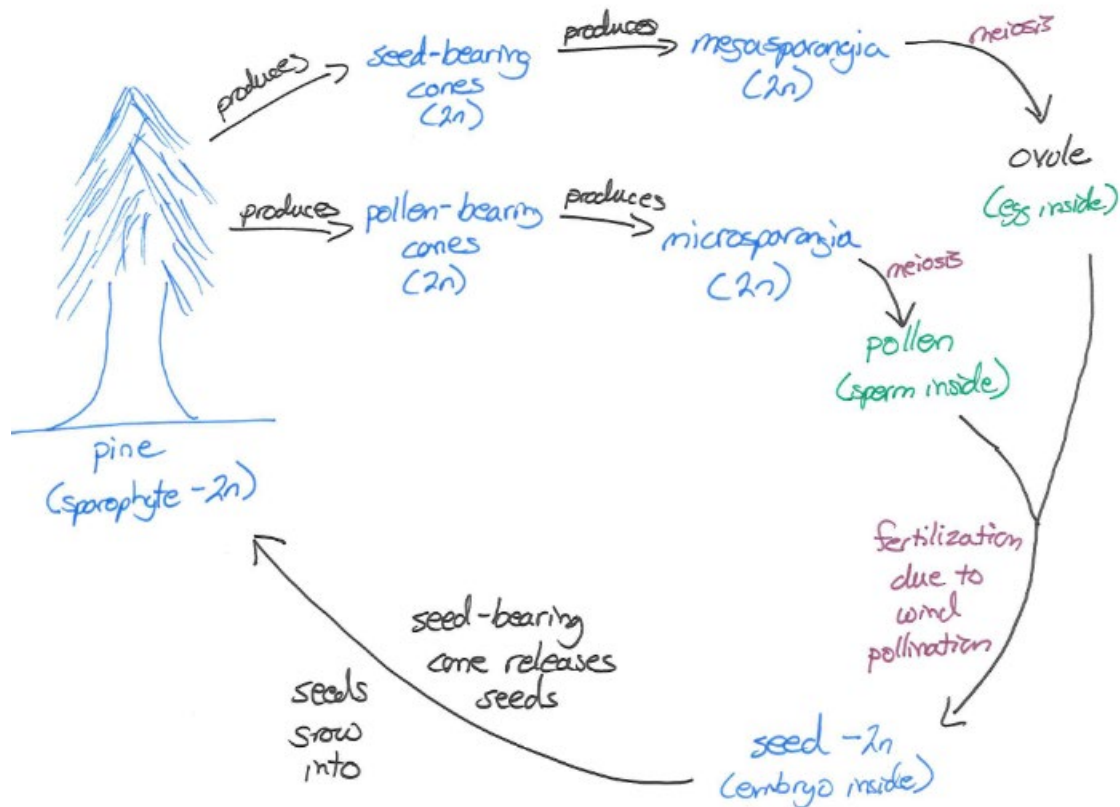 produces
seed-bearing
cones
(2n)
produces
megasporangia
(2n)
meiosis
ovule
(egg inside)
produces
pollen-bearing
cones
(2n)
produces
microsporangia
(2n)
meiosis
pollen
(sperm inside)
pine
(sporophyte - 2n)
fertilization
due to
wind
pollination
seed - 2n
(embryo inside)
seed-bearing
cone releases
seeds
seeds
grow
into